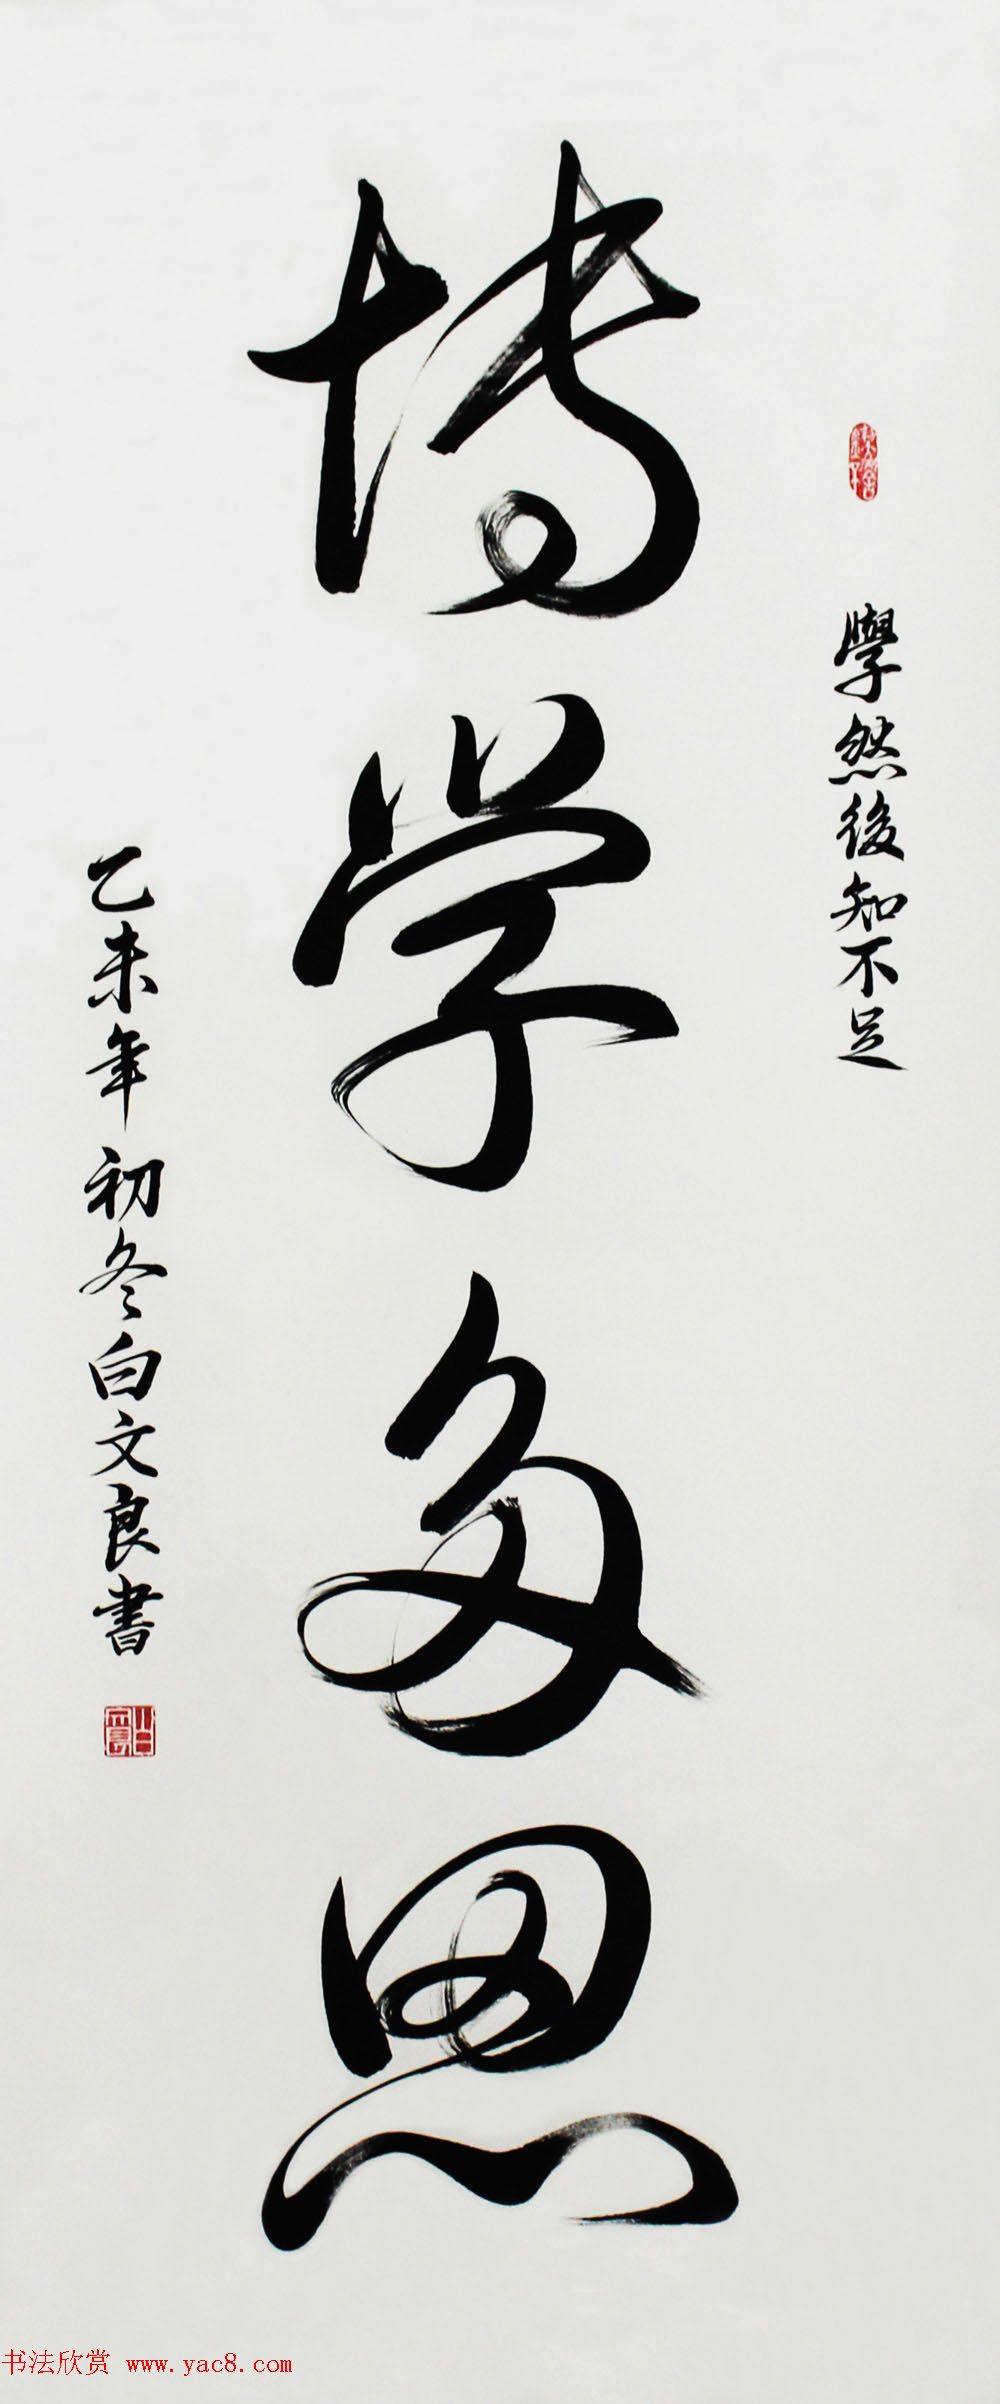 學然後知不足
博学多思
乙未年初冬白文良書
书法欣赏 www.yac8.com